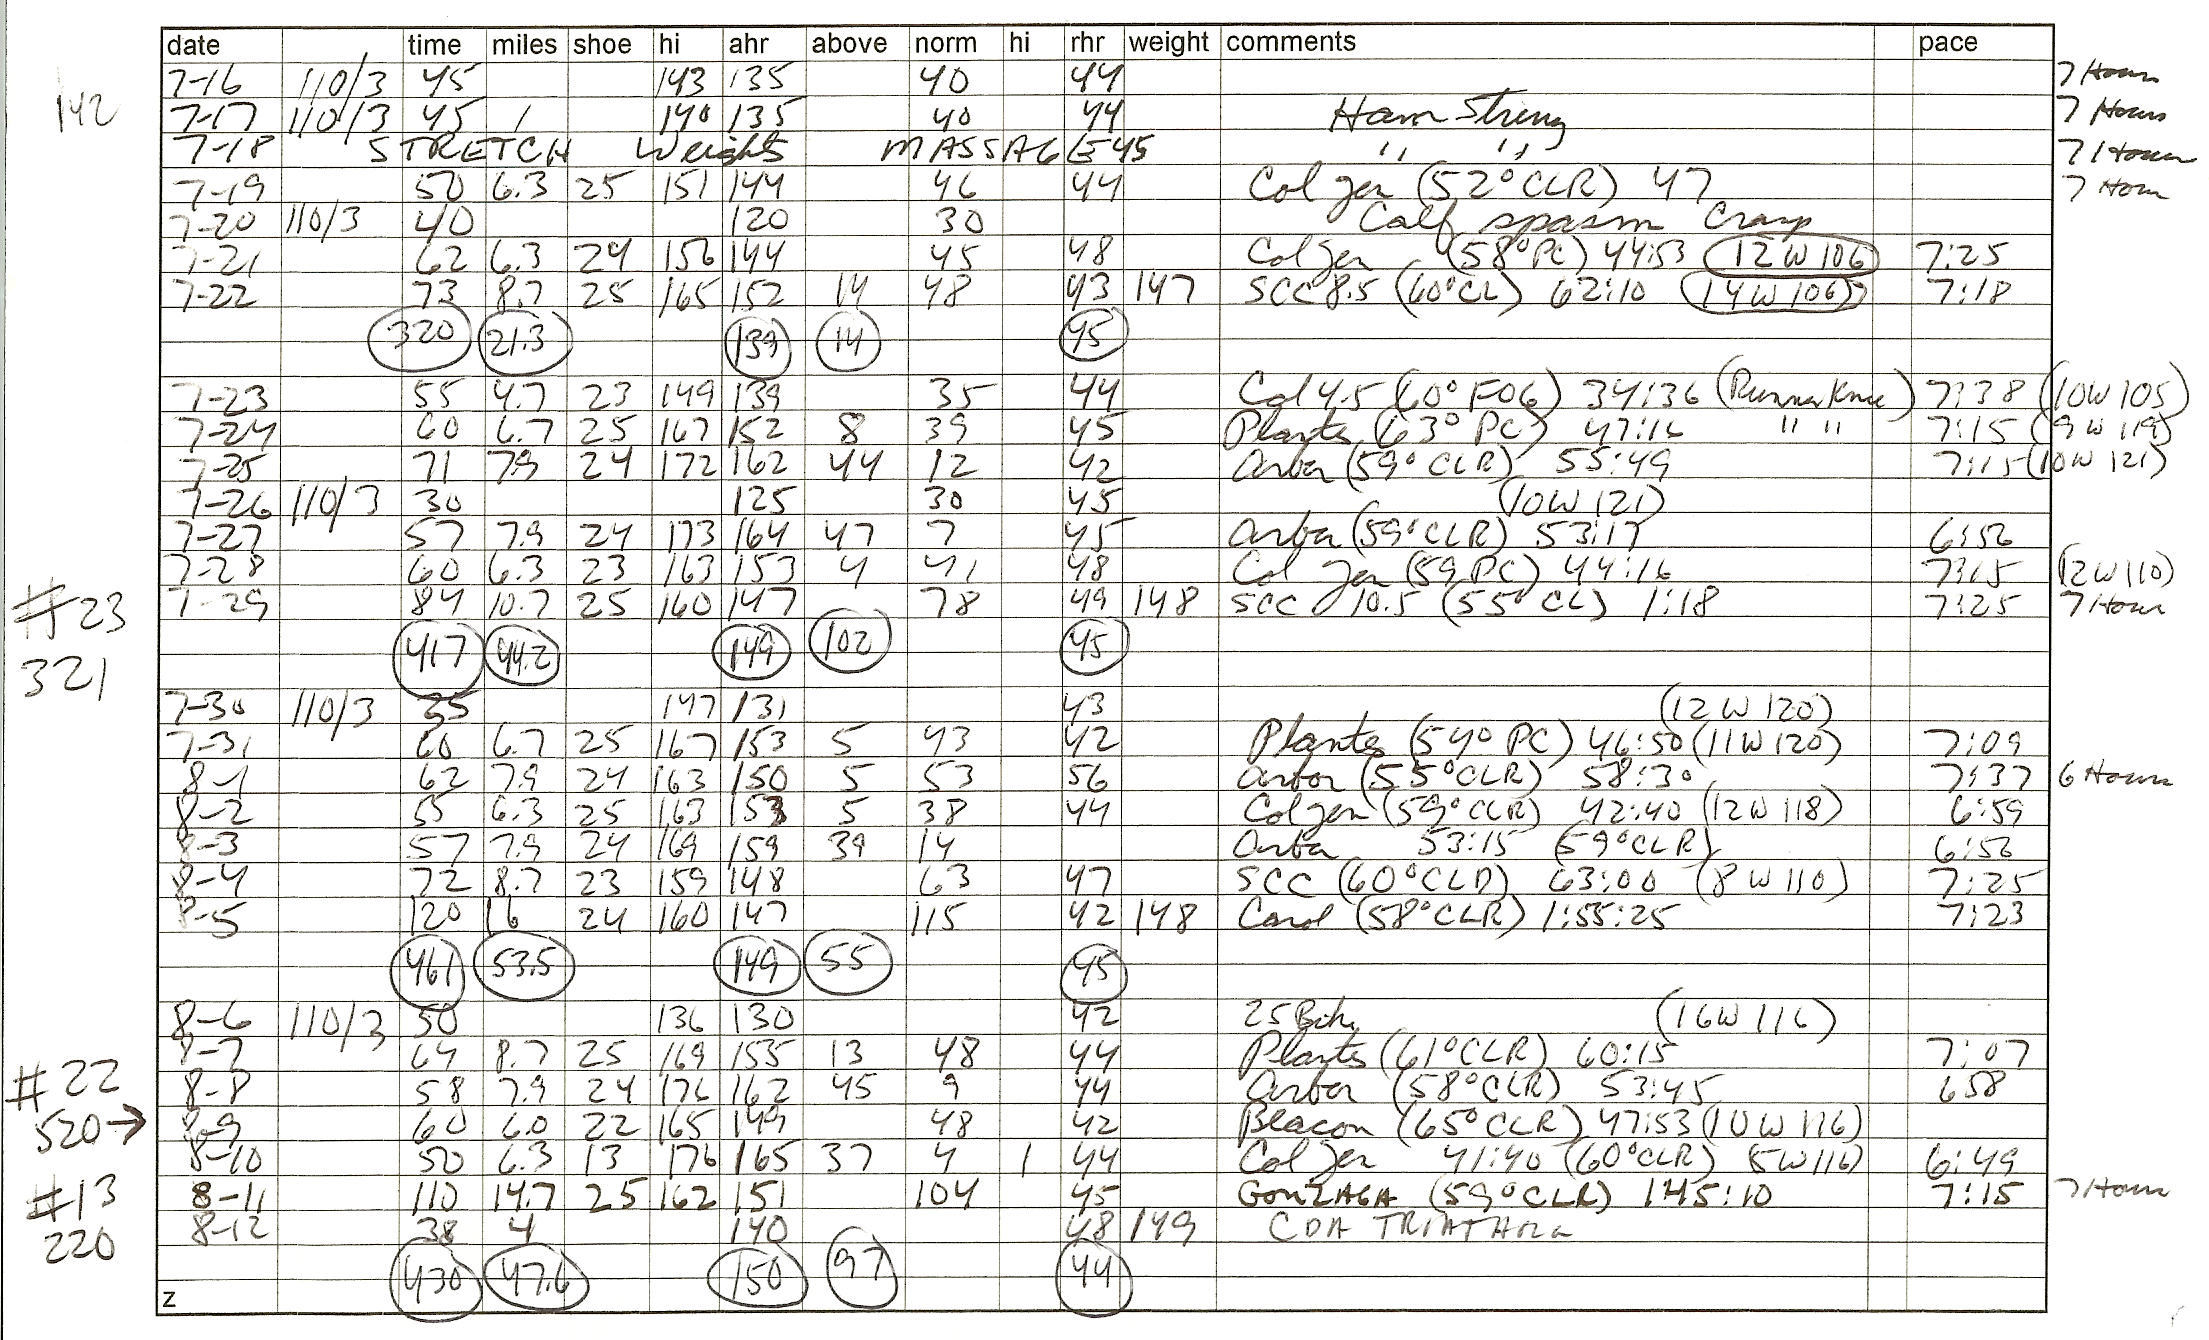 date time miles shoe hi ahr above norm hi rhr weight comments pace
7-16 110/3 45 143 135 40 44 7 Hours
142
7-17 110/3 45 / 140 135 40 44 Ham String 7 Hours
7-18 STRETCH Weights MASSAGE 45 " " 7 Hours
7-19 50 6.3 25 151 144 46 44 Col Gen (52° CLR) 47 7 Hour
7-20 110/3 40 120 30 Calf spasm Cramp
7-21 62 6.3 24 156 144 45 48 Col Gen (58° PC) 44:53 12 W 106 7:25
7-22 73 8.7 25 165 152 14 48 43 147 SCC 8.5 (60° CL) 62:10 (14 W 106) 7:18
320 21.3 139 14 45
7-23 55 4.7 23 149 139 35 44 Col 4.5 (60° FOG) 34:36 (Runners Knee) 7:38 (10W 105)
7-24 60 6.7 25 167 152 8 39 45 Plantes (63° PC) 47:16 " " 7:15 (9 W 119)
7-25 71 7.9 24 172 162 44 12 42 Arbor (59° CLR) 55:49 7:15 (10W 121)
7-26 110/3 30 125 30 45 (10W 121)
7-27 57 7.9 24 173 164 47 7 45 Arbor (59° CLR) 53:17 6:56
7-28 60 6.3 23 163 153 4 41 48 Col Gen (59 PC) 44:16 7:15 (12 W 110)
7-29 84 10.7 25 160 147 78 49 148 SCC 10.5 (55° CL) 1:18 7:25 7 Hour
#23
417 44.2 149 102 45
321
7-30 110/3 35 147 131 43 (12 W 120)
7-31 60 6.7 25 167 153 5 43 42 Plantes (54° PC) 46:50 (11 W 120) 7:09
8-1 62 7.9 24 163 150 5 53 56 Arbor (55° CLR) 58:30 7:37 6 Hours
8-2 55 6.3 25 163 153 5 38 44 Col Gen (59° CLR) 42:40 (12 W 118) 6:59
8-3 57 7.9 24 169 159 39 14 Arbor 53:15 (59° CLR) 6:56
8-4 72 8.7 23 159 148 63 47 SCC (60° CLD) 63:00 (8 W 110) 7:25
8-5 120 16 24 160 147 115 42 148 Carol (58° CLR) 1:55:25 7:23
461 53.5 149 55 45
8-6 110/3 50 136 130 42 25 Bike (16W 116)
8-7 64 8.7 25 169 155 13 48 44 Plantes (61° CLR) 60:15 7:07
#22
8-8 58 7.9 24 176 162 45 9 44 Arbor (58° CLR) 53:45 658
520→ 8-9 60 6.0 22 165 149 48 42 Beacon (65° CLR) 47:53 (10 W 116)
8-10 50 6.3 13 176 165 37 4 1 44 Col Gen 41:40 (60° CLR) (5 W 116) 6:49
#13
8-11 110 14.7 25 162 151 104 45 GONZAGA (59° CLR) 145:10 7:15 7 Hour
220
8-12 38 4 140 48 149 CDA
430 47.6 150 97 44
z